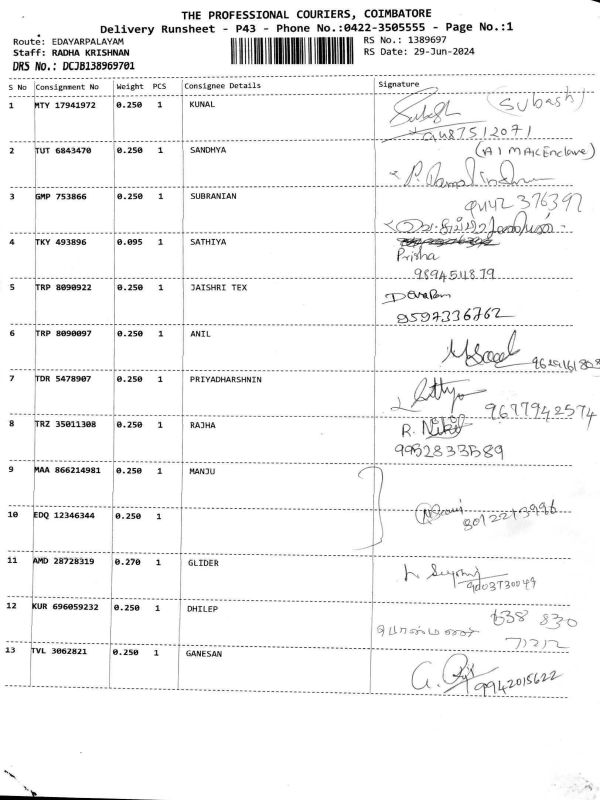 THE PROFESSIONAL COURIERS, COIMBATORE
Delivery Runsheet - P43 - Phone No.:0422-3505555 - Page No.:1
Route: EDAYARPALAYAM RS No.: 1389697
Staff: RADHA KRISHNAN RS Date: 29-Jun-2024
DRS No.: DCJB138969701
S No Consignment No Weight PCS Consignee Details Signature
1 MTY 17941972 0.250 1 KUNAL (Subash)
2 TUT 6843470 0.250 1 SANDHYA
3 GMP 753866 0.250 1 SUBRANIAN
4 TKY 493896 0.095 1 SATHIYA
Prisha
9894511879
5 TRP 8090922 0.250 1 JAISHRI TEX
9597336762
6 TRP 8090097 0.250 1 ANIL
7 TDR 5478907 0.250 1 PRIYADHARSHNIN
9677942574
8 TRZ 35011308 0.250 1 RAJHA R.
9 MAA 866214981 0.250 1 MANJU
10 EDQ 12346344 0.250 1
11 AMD 28728319 0.270 1 GLIDER
9003730049
12 KUR 696059232 0.250 1 DHILEP 638 830
71212
13 TVL 3062821 0.250 1 GANESAN
9942015622